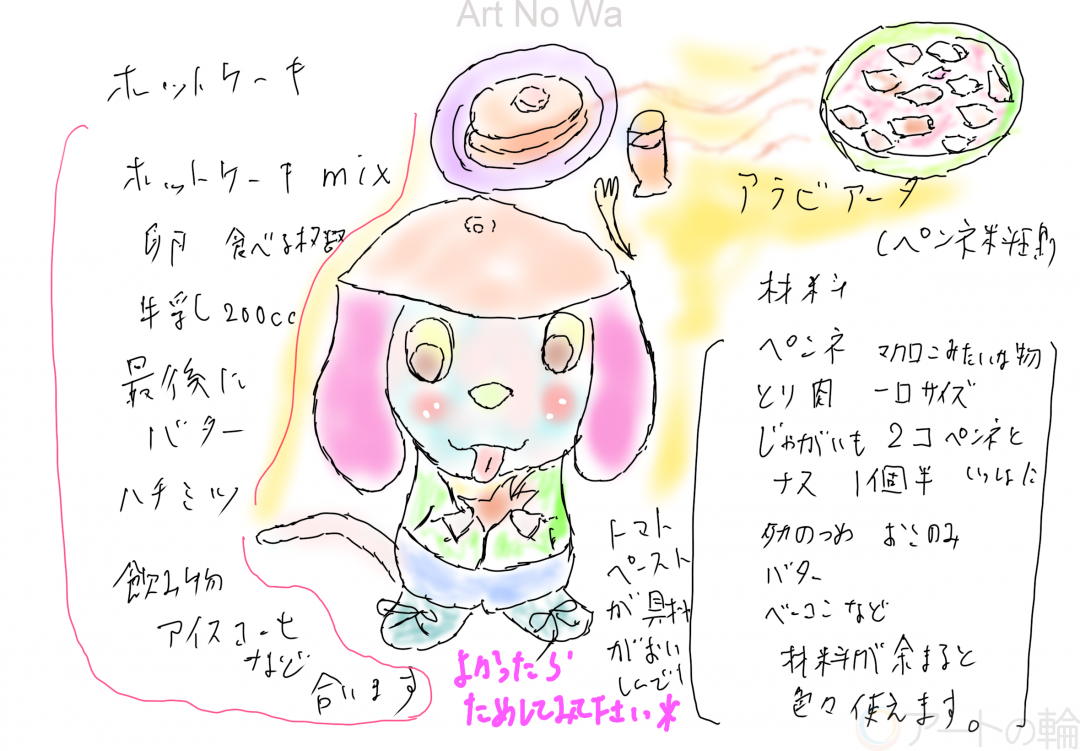 Art No Wa
ホットケーキ
ホットケーキ mix
卵 食べる枚数
牛乳 200cc
最後に
バター
ハチミツ
飲み物
アイスコーヒ
など
合います
アラビアータ
(ペンネ料理)
材料
ペンネ マカロニみたいな物
とり肉 一口サイズ
じゃがいも 2コ ペンネと
ナス 1個半 いっしょに
タカのつめ おこのみ
バター
ベーコンなど
材料が余まると
色々使えます。
トマト
ペースト
が具材
がおい
しんです
よかったら
ためしてみて下さい*
アートの輪